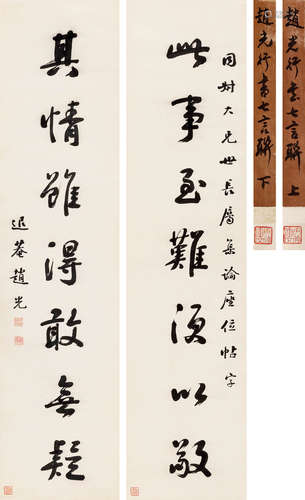 趙光行書七言聯 上
趙光行書七言聯 下
對大兄世長屬集論座位帖字
此事至難須以敬
其情雖得敢無疑
退菴趙光